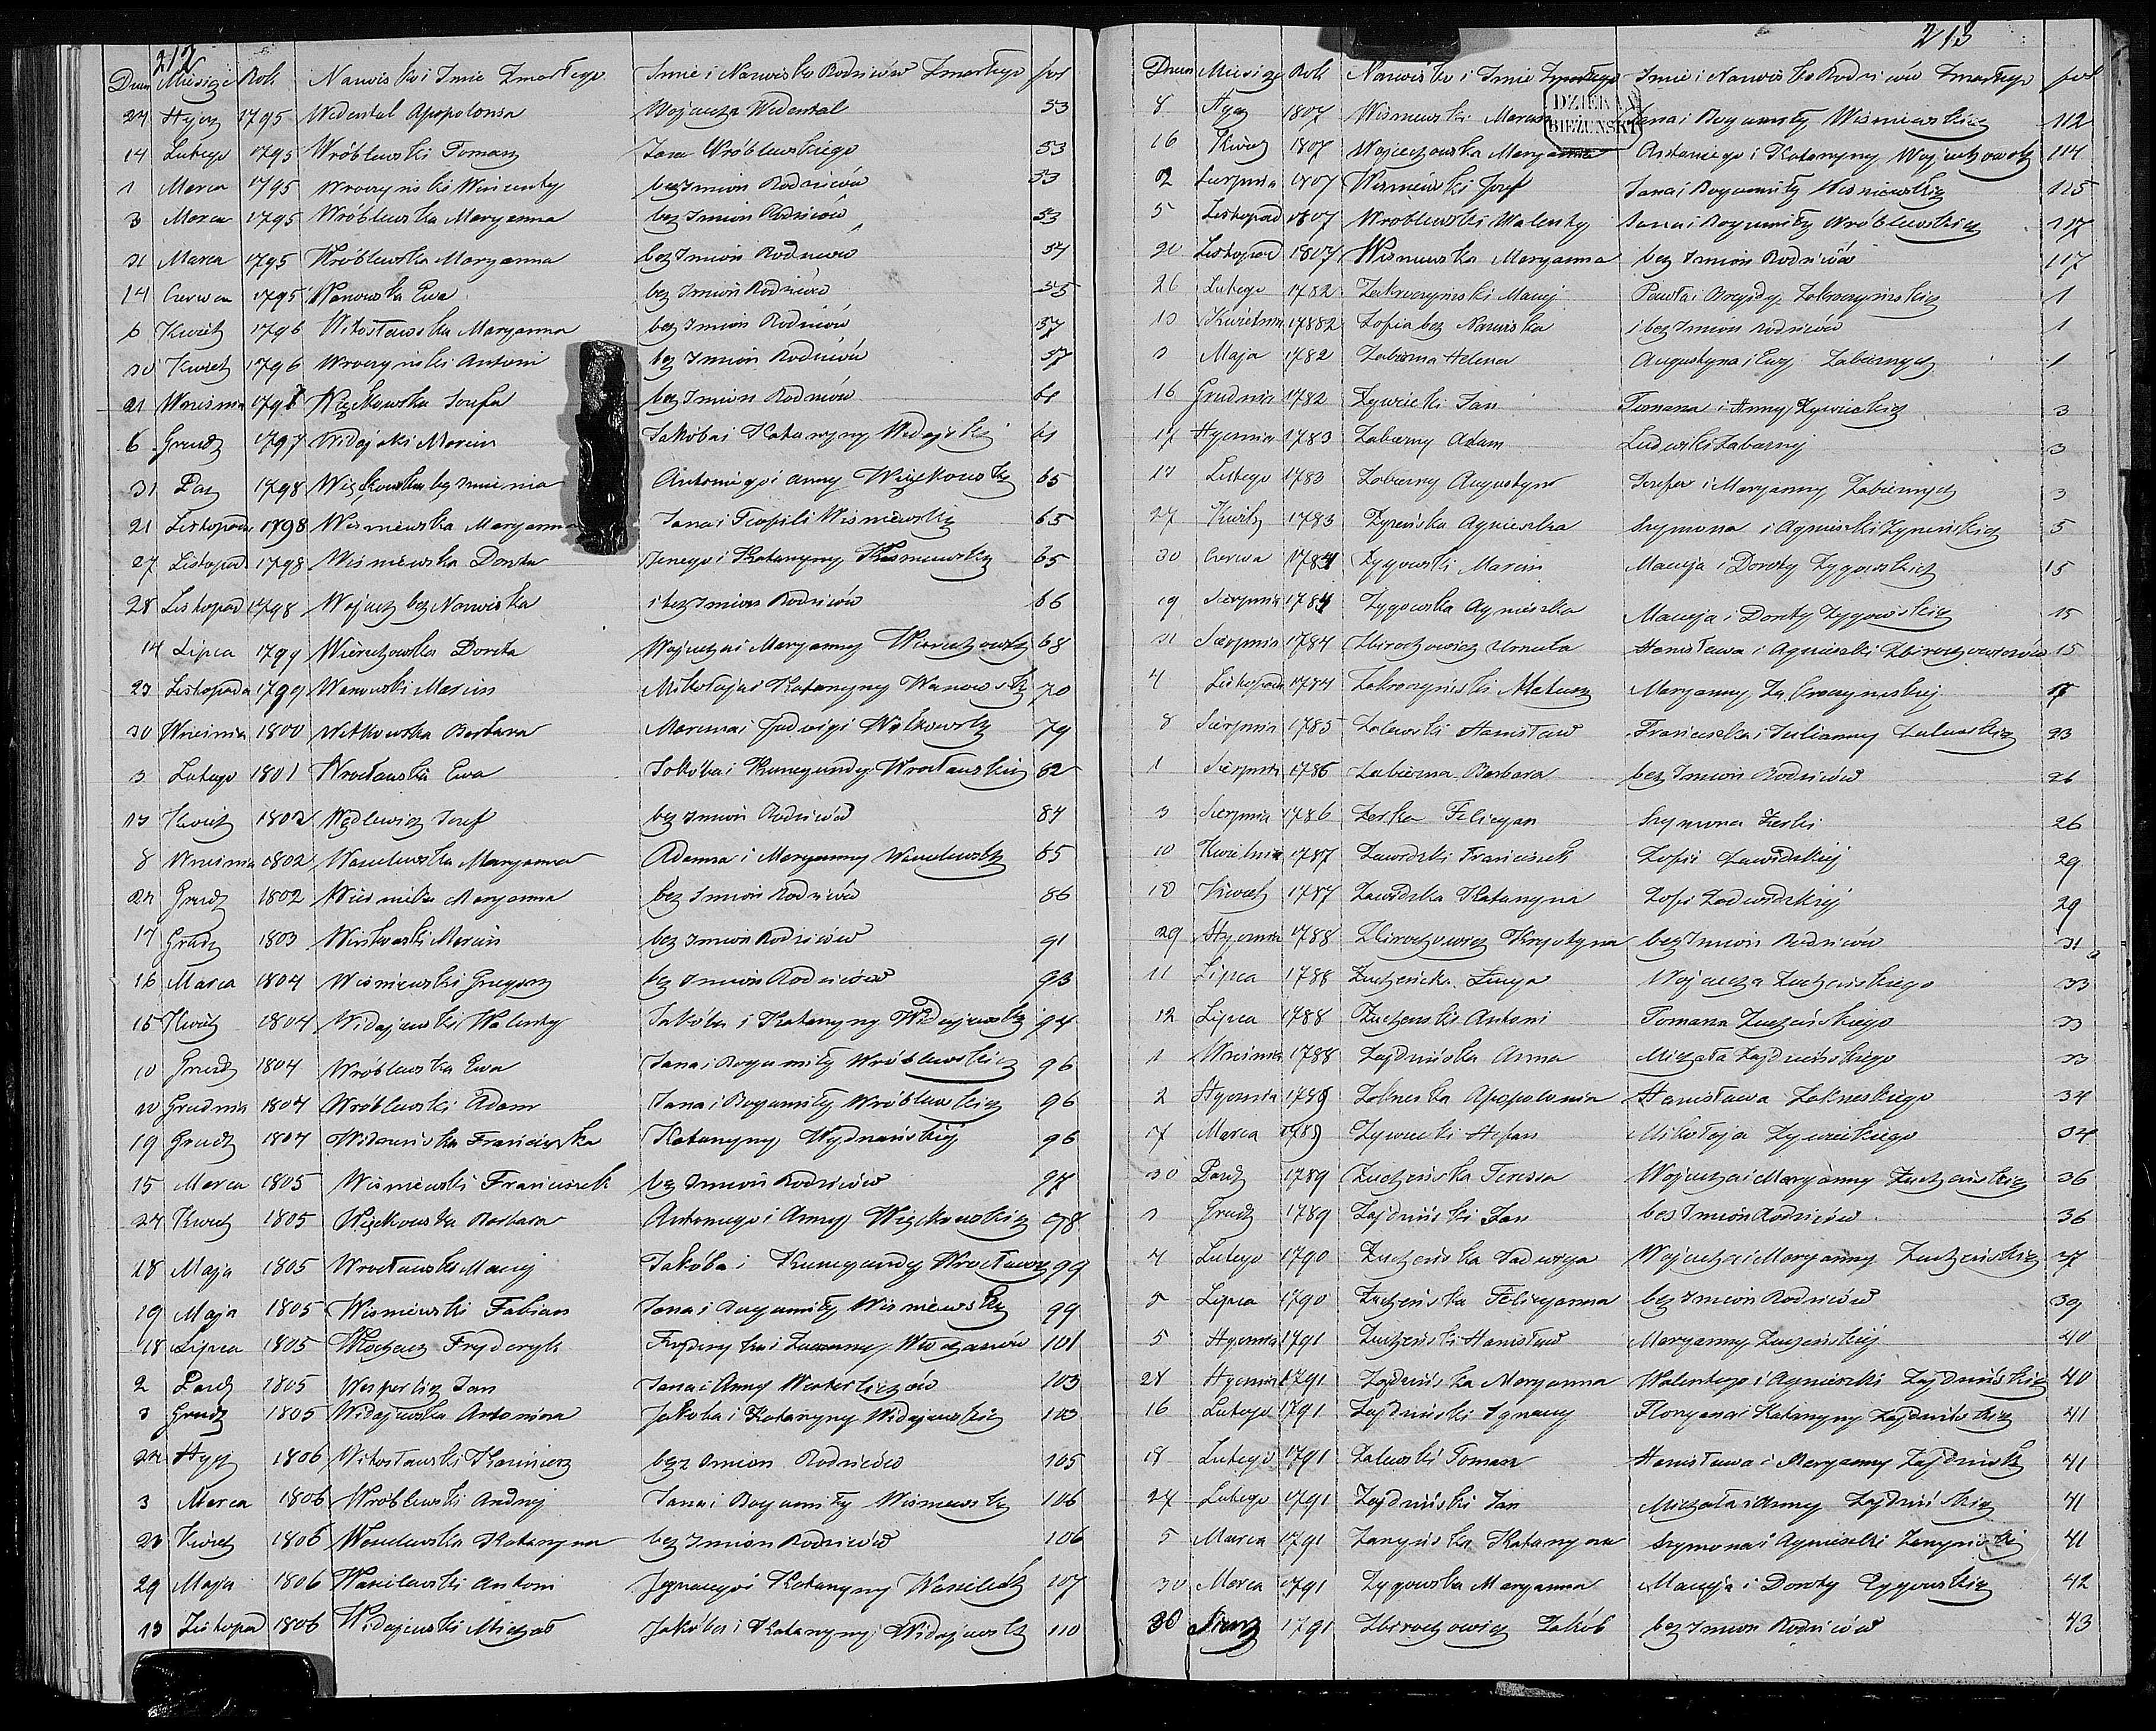 212
Dzień Miesiąc Rok Nazwisko i Imie Zmarłego Imie i Nazwisko Rodziców Zmarłego fol
24 Stycz 1795 Wedental Apopolonia Wojciecha Wedental 53
14 Lutego 1795 Wróblewski Tomasz Jana Wróblewskiego 53
1 Marca 1795 Wroczyński Wincenty bez Imion Rodziców 53
3 Marca 1795 Wróblewska Maryanna bez Imion Rodziców 53
31 Marca 1795 Wróblewska Maryanna bez Imion Rodziców 54
14 Czerwca 1795 Wanowska Ewa bez Imion Rodziców 55
6 Kwiet 1796 Witosławska Maryanna bez Imion Rodziców 57
30 Kwiet 1796 Wroczyński Antoni bez Imion Rodziców 57
21 Wrzesnia Więckowska Jozefa bez Imion Rodziców 61
6 Grudz 1797 Widajski Marcin Jakóba i Katarzyny Widajski 61
31 Paz 1798 Więckowska bez imienia Antoniego i Anny Więkowsk 65
21 Listopada 1798 Wisniewska Maryanna Jana i Teofili Wisniewskich 65
27 Listopad 1798 Wisniewska Dorota Katarzyny Wisniewskich 65
28 Listopad 1798 Wojciech bez Nazwiska i bez Imion Rodziców 66
14 Lipca 1799 Wierzchowska Dorota Wojciecha i Maryanny Wierzchowsk 68
23 Listopada 1799 Wanowski Marcin Mikołaja i Katarzyny Wanowsk 70
30 Wrzesnia 1800 Witkowska Barbara Marcina i Jadwigi Witkowsk 79
3 Lutego 1801 Wrocławska Ewa Jakóba i Kunegundy Wrocławskich 82
13 Kwiet 1802 Wędlewicz Jozef bez Imion Rodziców 84
8 Wrzesnia 1802 Wasielewska Maryanna Adama i Maryanny Wasielewsk 85
Grudz 1802 Maryanna bez Imion Rodziców 86
17 Grudz 1803 Marcin bez Imion Rodziców 91
16 Marca 1804 Wisniewski Grzegorz bez Imion Rodziców 93
15 Kwiet 1804 Widajewski Walenty Jakóba i Katarzyny Widajewsk 94
10 Grudz 1804 Wróblewska Ewa Jana i Bogumiły Wróblewskich 96
10 Grudnia 1804 Wróblewski Adam Jana i Bogumiły Wróblewskich 96
19 Grudz 1804 Franciszka Katarzyny 96
15 Marca 1805 Wisniewski Franciszek bez Imion Rodziców 97
24 Kwiet 1805 Więckowska Barbara Antoniego i Anny Więckowskich 98
18 Maja 1805 Wrocławski Maciej Jakóba i Kunegundy Wrocławsk 99
19 Maja 1805 Wisniewski Fabian Jana i Bogumiły Wisniewsk 99
18 Lipca 1805 Fryderyk Fryderyka i Zuzanny 101
2 Pazdz 1805 Jan Jana i Anny 103
3 Grudz 1805 Widajewska Antonina Jakóba i Katarzyny Widajewskich 103
Stycz 1806 Witosławski Kazimierz bez Imion Rodziców 105
3 Marca 1806 Wróblewski Andrzej Jana i Bogumiły Wisniewsk 106
23 Kwiet 1806 Wasielewska Katarzyna bez Imion Rodziców 106
29 Maja 1806 Wasilewski Antoni Jgnacego i Katarzyny 107
13 Listopad 1806 Widajewski Michał Jakóba i Katarzyny Widajewsk 110
213
Dzień Miesiąc Rok Nazwisko i Imie Zmarłego Imie i Nazwisko Rodziców Zmarłego fol
DZIEKAN
BIEŻUŃSKI
8 Stycz 1807 Wisniewski Marcin Jana i Bogumiły Wisniewskich 112
16 Kwiet 1807 Wojciechowska Maryanna Antoniego i Katarzyny Wojciechowsk 114
2 Sierpnia 1807 Wisniewski Jozef Jana i Bogumiły Wisniewskich 115
5 Listopad 1807 Wróblewski Walenty Jana i Bogumiły Wróblewskich 117
20 Listopad 1807 Wisniewska Maryanna bez Imion Rodziców 117
26 Lutego 1782 Zakroczymski Maciej Pawła i Brygidy Zakroczymskich 1
Kwietnia 17882 Zofia bez Nazwiska i bez Imion rodziców 1
3 Maja 1782 Zabierna Helena Augustyna i Ewy Zabiernych 1
16 Grudnia 1782 Zywiecki Jan Tomasza i Anny Zywieckich 3
17 Stycznia 1783 Zabierny Adam Ludwiki Zabierny 3
Lutego 1783 Zabierny Augustyn Jozefa i Maryanny Zabiernych 3
27 Kwiet 1783 Zyreńska Agnieszka Szymona i Agnieszki Zyreńskich 5
30 Czerwca 1784 Zygowski Marcin Macieja i Doroty Zygowskich 15
19 Sierpnia 1784 Zygowska Agnieszka Macieja i Doroty Zygowskich 15
31 Sierpnia 1784 Zbirochowicz Urszula Stanisława i Agnieszki Zbirochowiczów 15
4 Listopada 1784 Zakroczymski Mateusz Maryanny Zakroczymskiej 17
8 Sierpnia 1785 Zalewski Stanisław Franciszka i Julianny Zalewskich 23
1 Sierpnia 1786 Zabierna Barbara bez Imion Rodziców 26
3 Sierpnia 1786 Zerka Felicyan Szymona Zerki 26
10 Kwietnia 1787 Zawidzki Franciszek Zofii Zawidzkiej 29
18 Kwiet 1787 Zawidzka Katarzyna Zofii Zawidzkiej 29
29 Stycznia 1788 Zbirochowicz Krystyna bez Imion Rodziców 31
11 Lipca 1788 Łucya Wojciecha Zuchenskiego 33
12 Lipca 1788 Zuchenski Antoni Tomasza Zuchenskiego 33
1 Wrzesnia 1788 Zajdzińska Anna Michała Zajdzińskiego 33
2 Stycznia 1789 Apopolonia Stanisława 34
17 Marca 1789 Zywiecki Stefan Mikołaja Zywieckiego 34
30 Pazdz 1789 Zucheńska Teressa Wojciecha i Maryanny Zucheńskich 36
3 Grudz 1789 Zajdziński Jan bez Imion Rodziców 36
4 Lutego 1790 Zucheńska Jadwiga Wojciecha i Maryanny Zucheńskich 37
5 Lipca 1790 Zucheńska Felicyanna bez Imion Rodziców 39
5 Stycznia 1791 Zucheński Stanisław Maryanny Zucheńskiej 40
Stycznia 1791 Zajdzińska Maryanna Walentego i Agnieszki Zajdzińskich 40
16 Lutego 1791 Zajdziński Ignacy Floryana i Katarzyny Zajdzińskich 41
18 Lutego 1791 Zalewski Tomasz Stanisława i Maryanny Zajdzińsk 41
27 Lutego 1791 Zajdziński Jan Michała i Anny Zajdzińskich 41
5 Marca 1791 Katarzyna Szymona i Agnieszki 41
30 Marca 1791 Zygowska Maryanna Macieja i Doroty Zygowskich 42
30 1791 Zbirochowicz Jakób bez Imion Rodziców 43